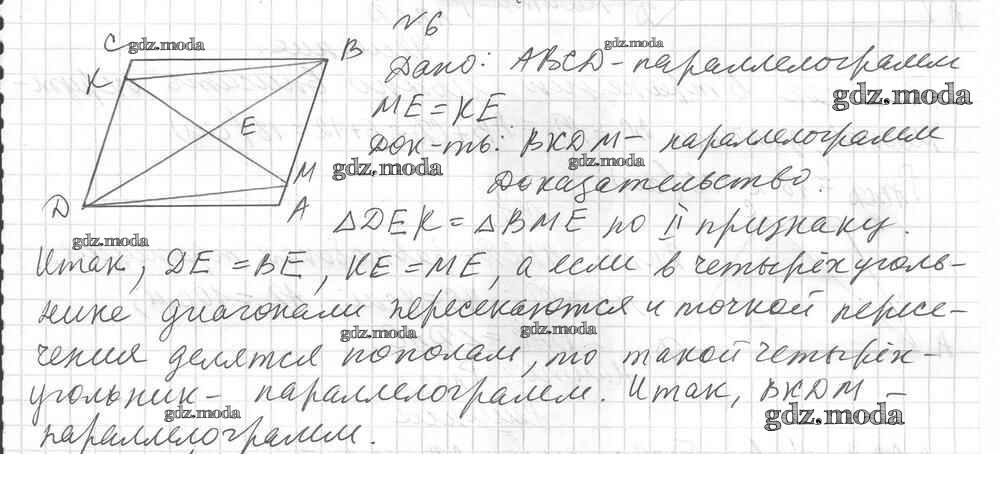 №6
C gdz.moda B
Дано: ABCD - параллелограмм
gdz.moda
K
ME = KE
gdz.moda
E
Док-ть: BKDM - параллелограмм
gdz.moda
gdz.moda
M
Доказательство.
D A
△DEK = △BME по II признаку.
gdz.moda
Итак, DE = BE, KE = ME, а если в четырёхуголь-
нике диагонали пересекаются и точкой пересе-
gdz.moda gdz.moda
чения делятся пополам, то такой четырёх-
угольник - параллелограмм. Итак, BKDM -
gdz.moda gdz.moda
параллелограмм.